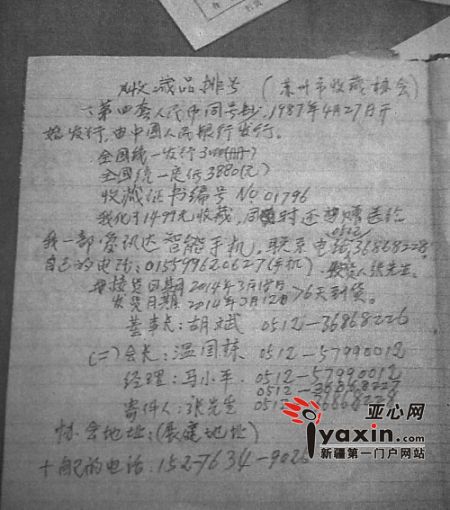 收藏品排号 (苏州市收藏协会)
一、第四套人民币同号钞, 1987年4月27日开
始发行,由中国人民银行发行。
全国统一发行3000(册)
全国统一定价3880(元)
收藏证书编号 NO 01796
我化了1499元收藏,同时还赠送给
我一部 智能手机。联系电话 0512/36868228,
自己的电话:(手机) 张先生。
接货日期2014年3月18日
发货日期2014年3月12日 >6天到货。
董事长:胡斌 0512-36868226
(二)会长:温国栋 0512-57990012
经理:马小平. 0512-57990012
寄件人:张先生 0512-36868228
协会地址:( 地址)
的电话:152-7634-
亚心网
iyaxin.com
新疆第一门户网站